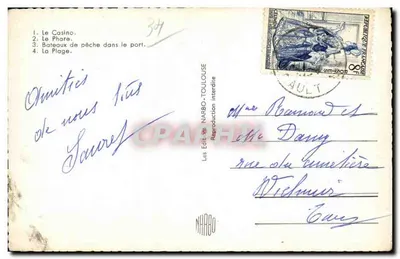 1. Le Casino.
2. Le Phare.
3. Bateaux de pêche dans le port.
4. La Plage.
34
Amitiés
de nous tous
Les Editions NARBO-TOULOUSE
Reproduction interdite
NARBO
REPUBLIQUE FRANÇAISE
8F
AULT
Mmes Raymond et
Dany
rue du cimetière